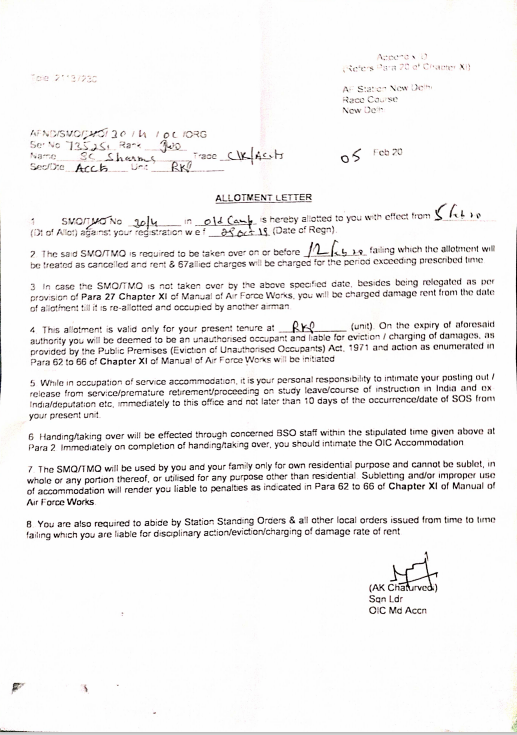 Appendix D
(Refers Para 20 of Chapter XI)
Tele 21137230
AF Station New Delhi
Race Course
New Delhi
AFND/SMQ/TMQ/30/4/OC/ORG
Ser No Rank JWO
Name SC Sharma Trade Clk/Accts
Sec/Dte Accts Unit RKP
05 Feb 20
ALLOTMENT LETTER
1 SMQ/TMQ No 30/4 in Old Camp is hereby allotted to you with effect from 5 Feb 20
(Dt of Allot) against your registration w e f (Date of Regn).
2 The said SMQ/TMQ is required to be taken over on or before 12 Feb 20 failing which the allotment will
be treated as cancelled and rent & 67allied charges will be charged for the period exceeding prescribed time
3 In case the SMQ/TMQ is not taken over by the above specified date, besides being relegated as per
provision of Para 27 Chapter XI of Manual of Air Force Works, you will be charged damage rent from the date
of allotment till it is re-allotted and occupied by another airman
4 This allotment is valid only for your present tenure at RKP (unit). On the expiry of aforesaid
authority you will be deemed to be an unauthorised occupant and liable for eviction / charging of damages, as
provided by the Public Premises (Eviction of Unauthorised Occupants) Act, 1971 and action as enumerated in
Para 62 to 66 of Chapter XI of Manual of Air Force Works will be initiated
5 While in occupation of service accommodation, it is your personal responsibility to intimate your posting out /
release from service/premature retirement/proceeding on study leave/course of instruction in India and ex
India/deputation etc, immediately to this office and not later than 10 days of the occurrence/date of SOS from
your present unit.
6 Handing/taking over will be effected through concerned BSO staff within the stipulated time given above at
Para 2 Immediately on completion of handing/taking over, you should intimate the OIC Accommodation
7 The SMQ/TMQ will be used by you and your family only for own residential purpose and cannot be sublet, in
whole or any portion thereof, or utilised for any purpose other than residential. Subletting and/or improper use
of accommodation will render you liable to penalties as indicated in Para 62 to 66 of Chapter XI of Manual of
Air Force Works.
8 You are also required to abide by Station Standing Orders & all other local orders issued from time to time
failing which you are liable for disciplinary action/eviction/charging of damage rate of rent
(AK Chaturvedi)
Sqn Ldr
OIC Md Accn